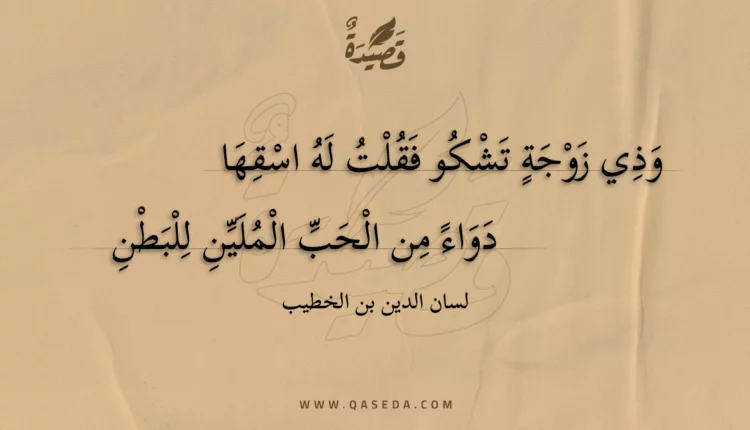 قَصِيْدَةٌ
وَذِي زَوْجَةٍ تَشْكُو فَقُلْتُ لَهُ اسْقِهَا
دَوَاءً مِن الْحَبِّ الْمُلَيِّنِ لِلْبَطْنِ
لسان الدين بن الخطيب
WWW.QASEDA.COM